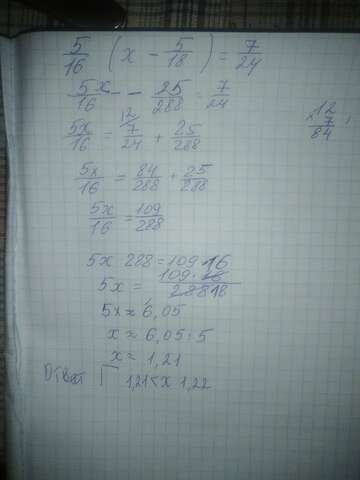 5/16 (x - 5/18) = 7/24
5x/16 - - 25/288 = 7/24
5x/16 = 12/ 7/24 + 25/288
5x/16 = 84/288 + 25/288
5x/16 = 109/288
5x 288 = 109 · 16
5x = 109 · 16 / 288 18
5x ≈ 6,05
x ≈ 6,05 : 5
x ≈ 1,21
Ответ Г 1,21 < x 1,22
× 12
7
84